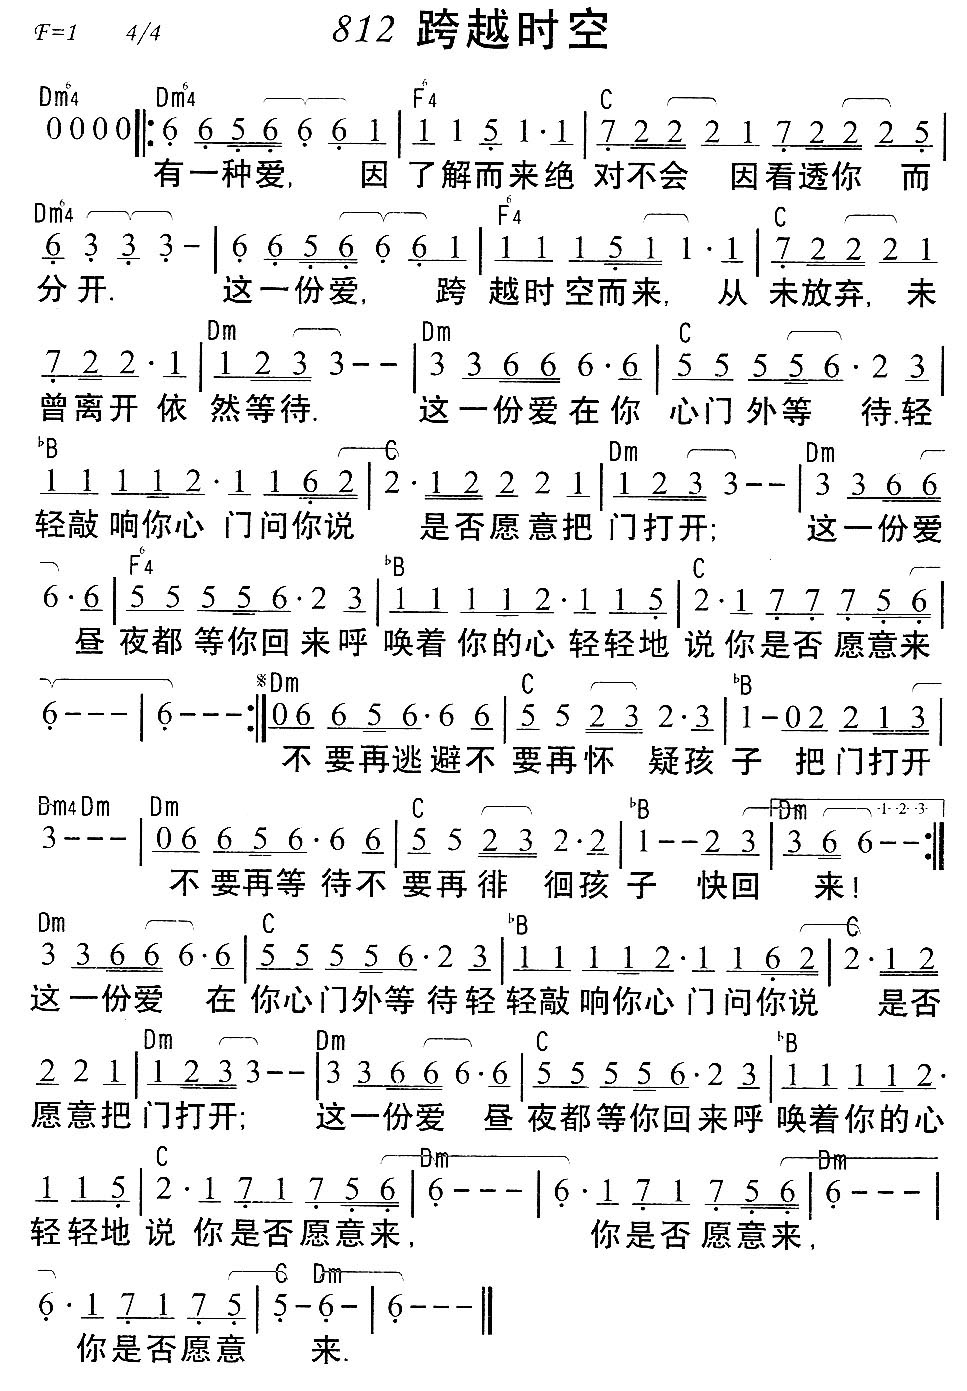 F=1 4/4 812 跨越时空
Dm⁶4 Dm⁶4 F⁶4 C
0 0 0 0 ‖: 6 6 5 6 6 6 1 | 1 1 5 1 · 1 | 7 2 2 2 1 7 2 2 2 5 |
有一种爱, 因 了解而来绝 对不会 因看透你 而
Dm⁶4 F⁶4 C
6 3 3 3 – | 6 6 5 6 6 6 1 | 1 1 1 5 1 1 · 1 | 7 2 2 2 2 1
分开. 这一份爱, 跨 越时空而来, 从 未放弃, 未
Dm Dm C
7 2 2 · 1 | 1 2 3 3 – – | 3 3 6 6 6 · 6 | 5 5 5 5 6 · 2 3 |
曾离开 依 然等待. 这一份爱在你 心门外等 待.轻
♭B C Dm Dm
1 1 1 1 2 · 1 1 6 2 | 2 · 1 2 2 2 1 | 1 2 3 3 – – | 3 3 6 6
轻敲响你心 门问你说 是否愿意把 门打开; 这一份爱
F⁶4 ♭B C
6 · 6 | 5 5 5 5 6 · 2 3 | 1 1 1 1 2 · 1 1 5 | 2 · 1 7 7 7 5 6 |
昼 夜都等你回来呼 唤着你的心轻轻地 说你是否愿意来
Dm C ♭B
6 – – – | 6 – – – :‖ 0 6 6 5 6 · 6 6 | 5 5 2 3 2 · 3 | 1 – 0 2 2 1 3 |
不要再逃避不要再怀 疑孩子 把门打开
Bm4 Dm Dm C ♭B Dm ·1··2··3·
3 – – – | 0 6 6 5 6 · 6 6 | 5 5 2 3 2 · 2 | 1 – – 2 3 | 3 6 6 – – :‖
不要再等待不要再徘 徊孩子 快回 来!
Dm C ♭B C
3 3 6 6 6 · 6 | 5 5 5 5 6 · 2 3 | 1 1 1 1 2 · 1 1 6 2 | 2 · 1 2
这一份爱 在你心门外等待轻 轻敲响你心 门问你说 是否
Dm Dm C ♭B
2 2 1 | 1 2 3 3 – – | 3 3 6 6 6 · 6 | 5 5 5 5 6 · 2 3 | 1 1 1 1 2 ·
愿意把 门打开; 这一份爱 昼 夜都等你回来呼 唤着你的心
C Dm Dm
1 1 5 | 2 · 1 7 1 7 5 6 | 6 – – – | 6 · 1 7 1 7 5 6 | 6 – – – |
轻轻地 说 你是否愿意来, 你是否愿意来,
C Dm
6 · 1 7 1 7 5 | 5 – 6 – | 6 – – – ‖
你是否愿意 来.